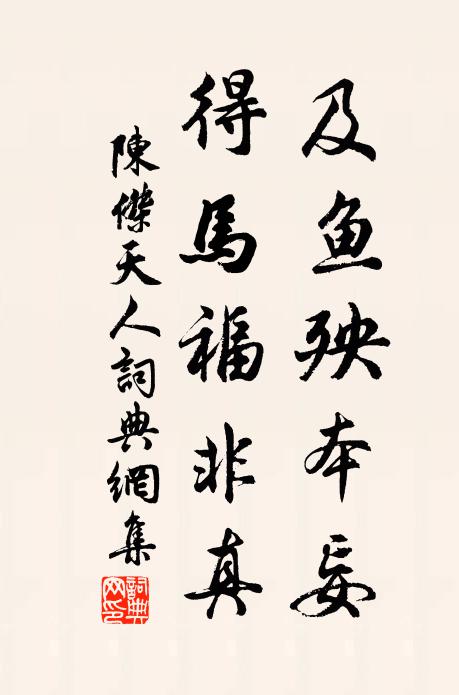 及鱼殃本妄
得馬福非真
陳傑天人詞典網集
詞典网印